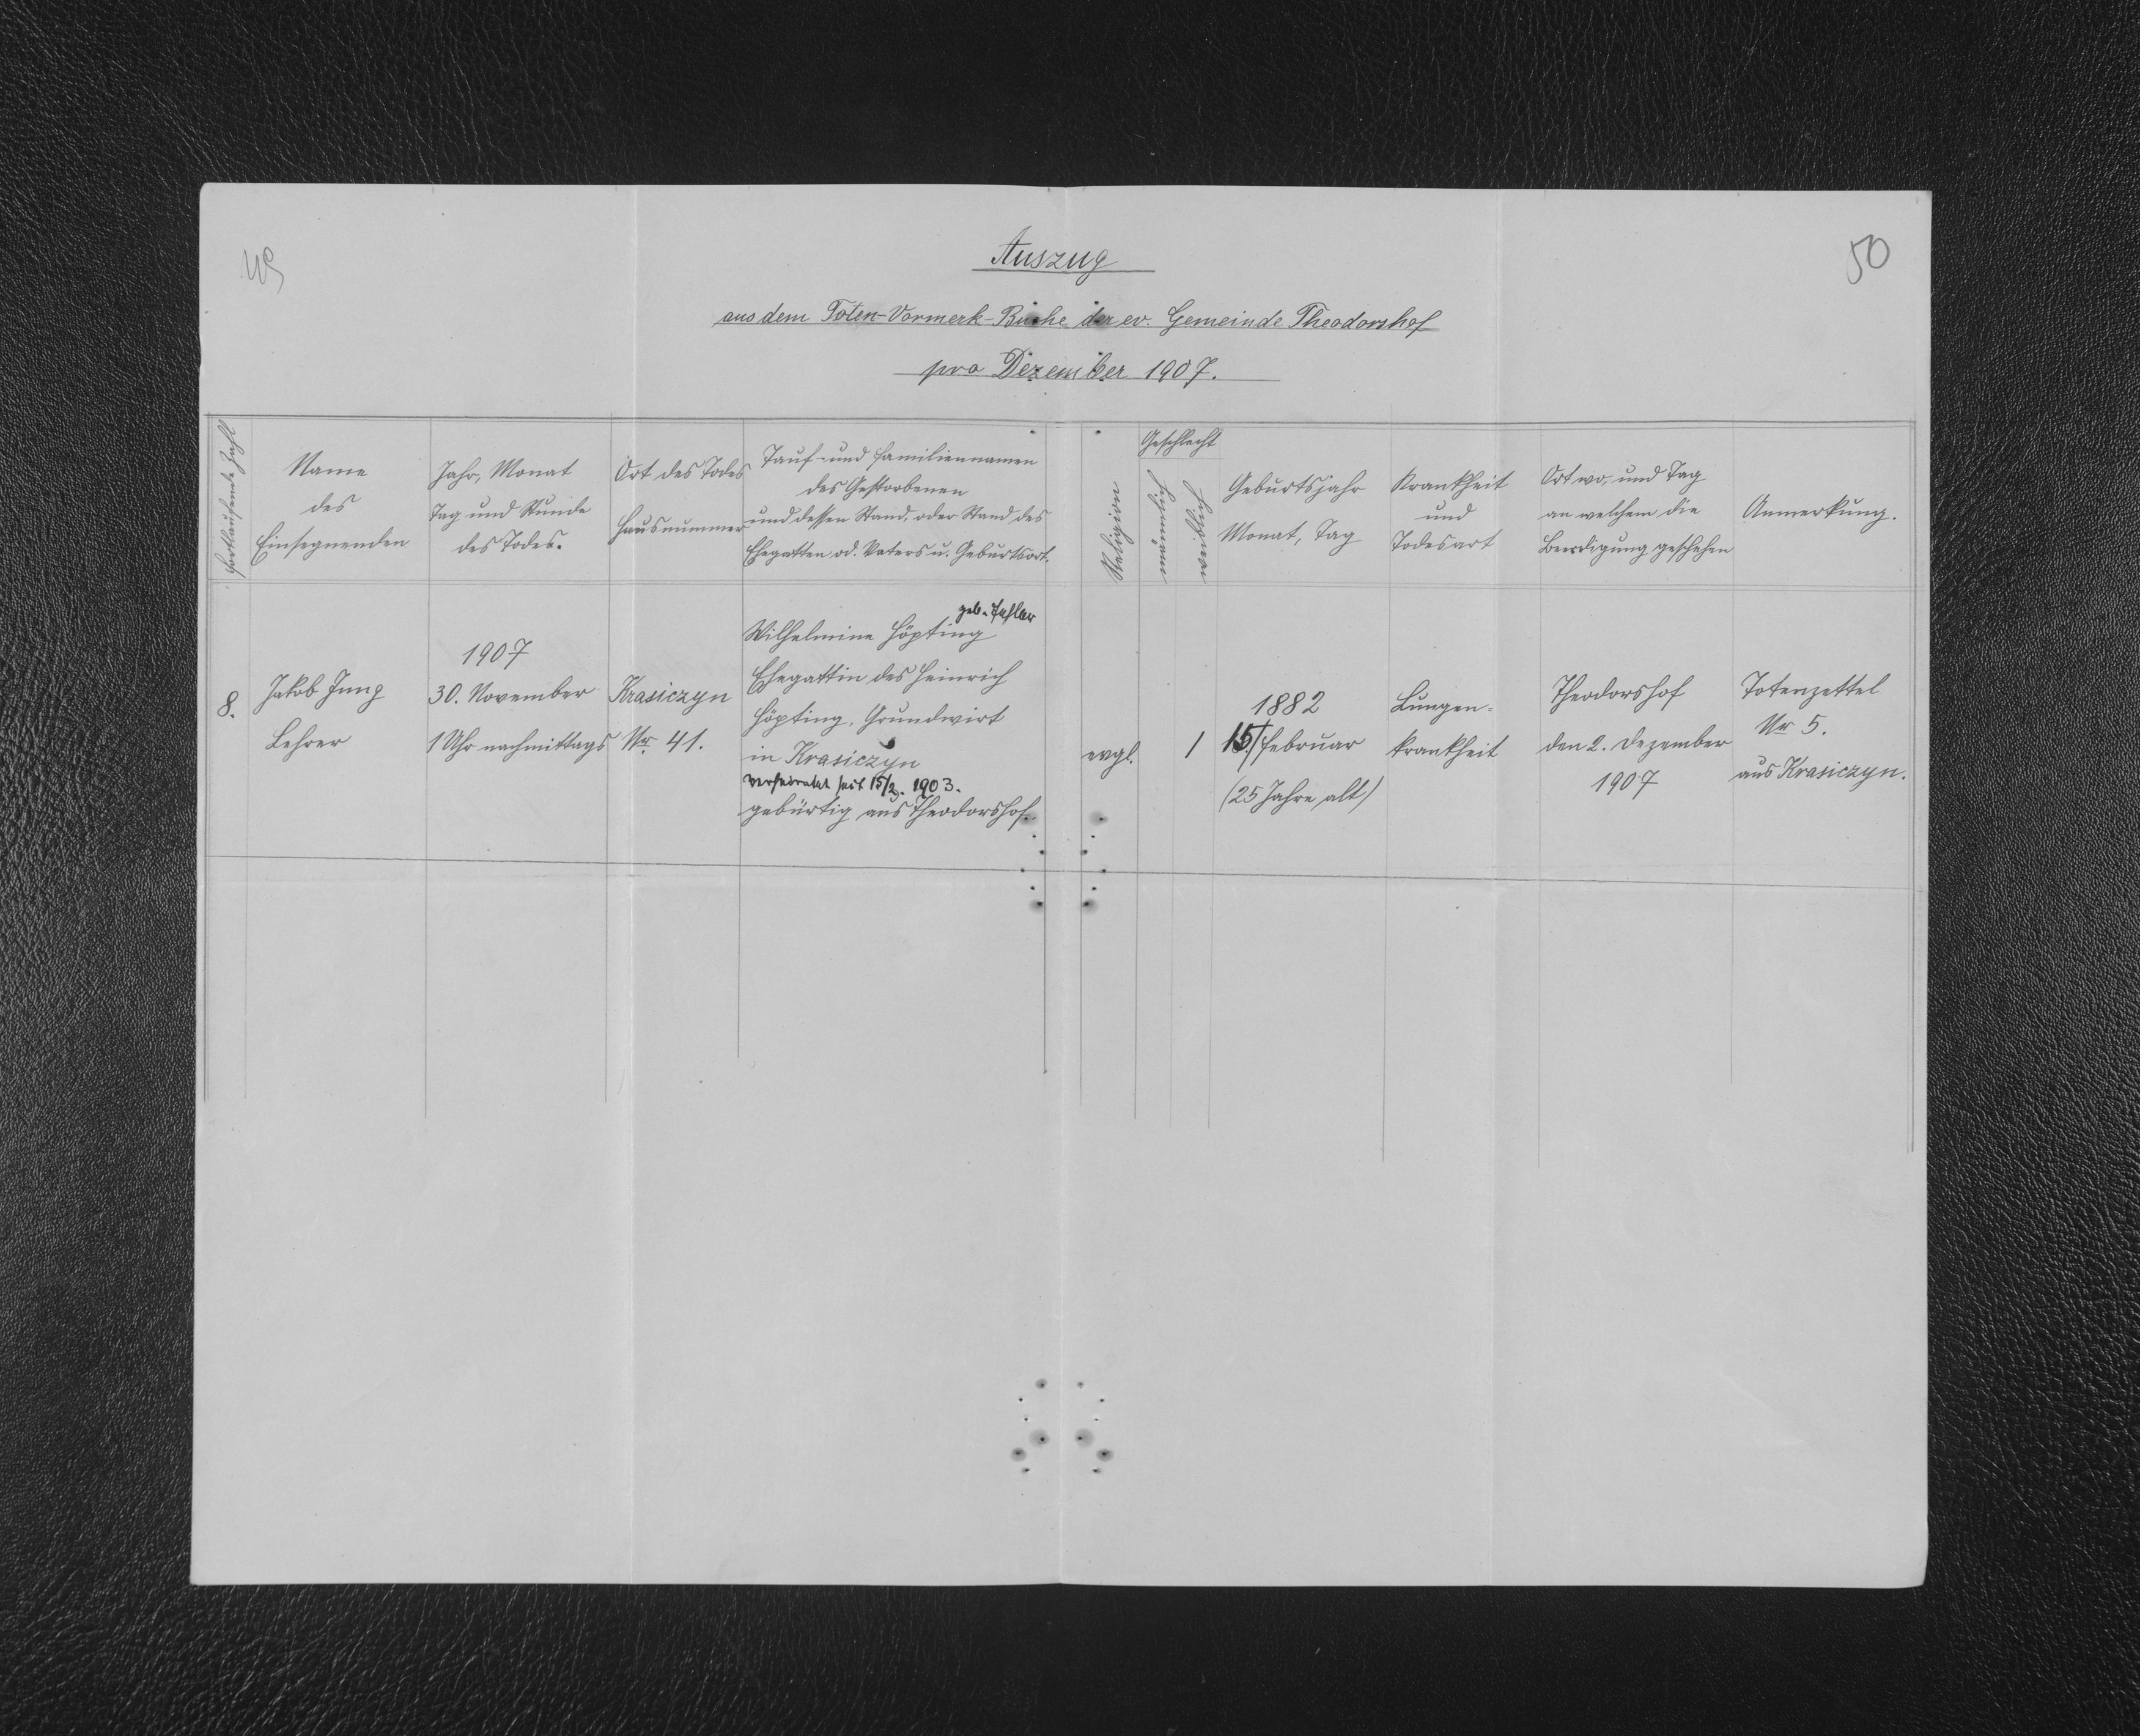 49
50
Auszug
aus dem Toten-Vormerk-Buche der ev. Gemeinde Theodorshof
pro Dezember 1907.
Fortlaufende Zahl
Name
des
Einsegnenden
Jahr, Monat
Tag und Stunde
des Todes.
Ort des Todes
Hausnummer
Tauf- und Familiennamen
des Gestorbenen
und dessen Stand, oder Stand des
Ehegatten od. Vaters u. Geburtsort.
Religion
Geschlecht
männlich
weiblich
Geburtsjahr
Monat, Tag
Krankheit
und
Todesart
Ort wo, und Tag
an welchem die
Beerdigung geschehen
Anmerkung.
8.
Jakob Jung
Lehrer
1907
30. November
1 Uhr nachmittags
Krasiczyn
Nr. 41.
geb.
Wilhelmine Höpting
Ehegattin des Heinrich
Höpting, Grundwirt
in Krasiczyn
verheiratet seit 15/2. 1903.
gebürtig aus Theodorshof.
evgl.
1
1882
15/ Februar
(25 Jahre alt)
Lungen-
krankheit
Theodorshof
den 2. Dezember
1907
Totenzettel
Nr 5.
aus Krasiczyn.